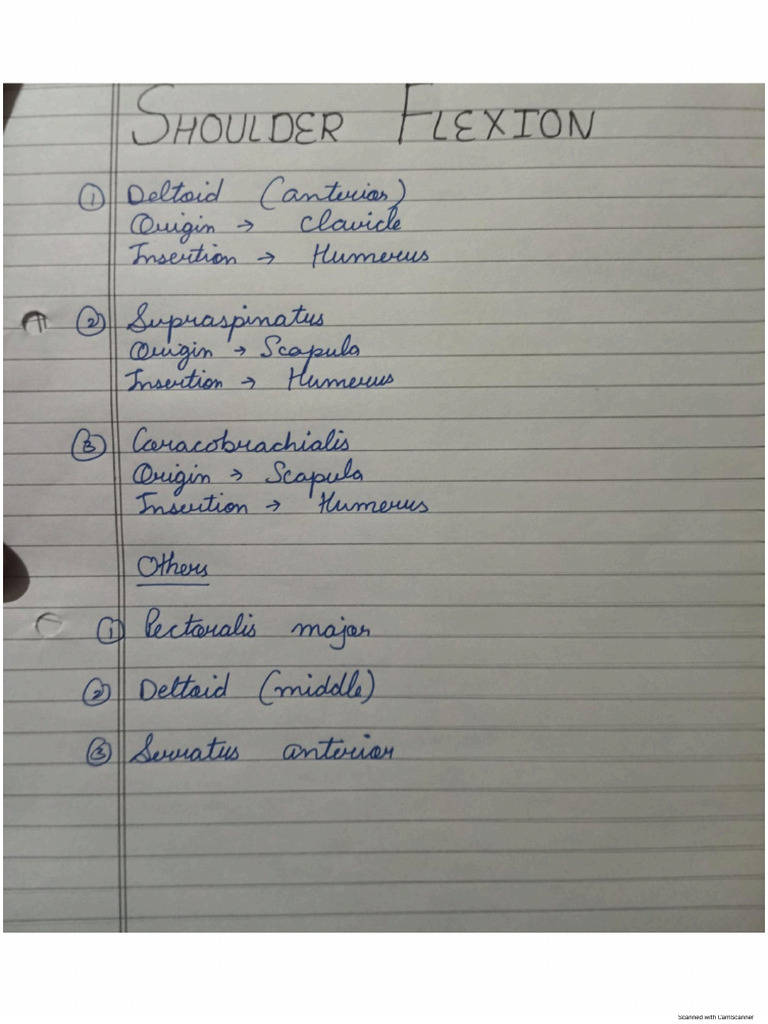 SHOULDER FLEXION
① Deltoid (anterior)
Origin → Clavicle
Insertion → Humerus
② Supraspinatus
Origin → Scapula
Insertion → Humerus
③ Coracobrachialis
Origin → Scapula
Insertion → Humerus
Others
① Pectoralis major
② Deltoid (middle)
③ Serratus anterior
Scanned with CamScanner